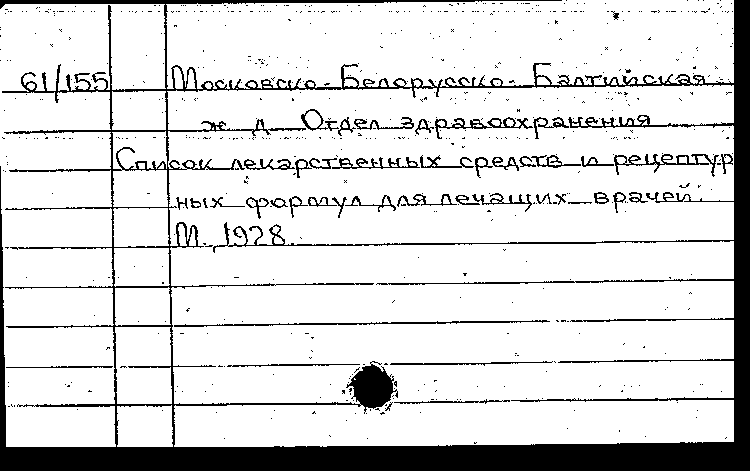 61/155 Московско-Белорусско-Балтийская
ж д Отдел здравоохранения
Список лекарственных средств и рецептур
ных формул для лечащих врачей.
М., 1928